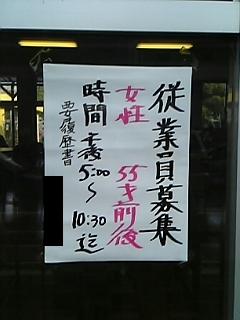 従業員募集
女性 55才前後
時間 午後5:00〜10:30迄
要履歴書